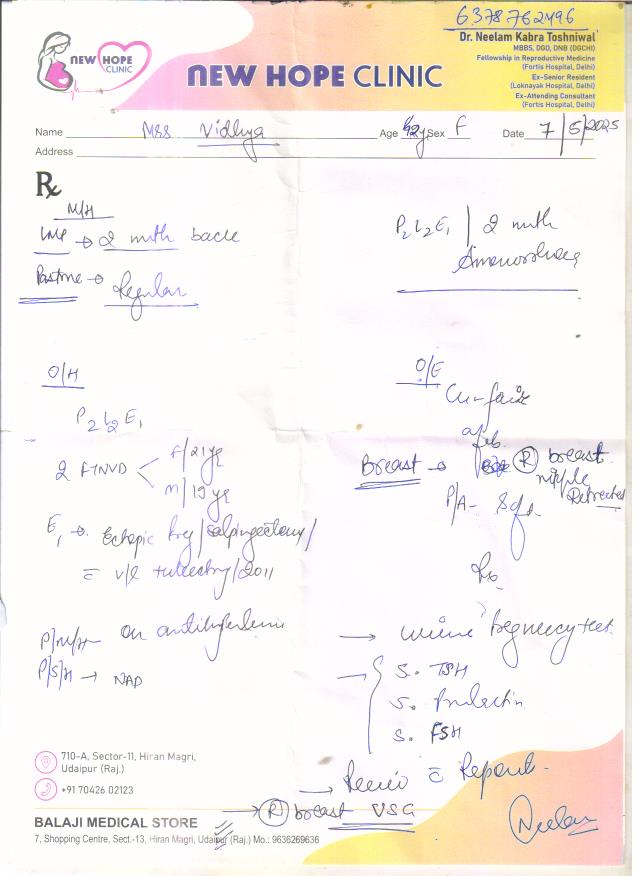 6378762496
Dr. Neelam Kabra Toshniwal
MBBS, DGO, DNB (DGCHI)
Fellowship in Reproductive Medicine
(Fortis Hospital, Delhi)
Ex-Senior Resident
(Loknayak Hospital, Delhi)
Ex-Attending Consultant
(Fortis Hospital, Delhi)
NEW HOPE
CLINIC
NEW HOPE CLINIC
Name Mrs Vidhya Age Sex F Date 7/5/2025
Address
Rx
M/H
LMP → 2 mnth back
→ Regular
P2L2E1 / 2 mnth
Amenorrhoea
O/H
P2L2E1
2 FTNVD < F/21 yr
M/19 yr
E1 → Ectopic / salpingectomy /
c̄ v/l /2011
P/M/H - On
P/S/H → NAD
O/E
afeb.
Breast → Ⓡ breast
nipple
Retracted
P/A - Soft
→ urine Pregnancy test.
→ S. TSH
S. Prolactin
S. FSH
→ Review c̄ Reports.
→ Ⓡ breast USG
Neelam
710-A, Sector-11, Hiran Magri,
Udaipur (Raj.)
+91 70426 02123
BALAJI MEDICAL STORE
7, Shopping Centre, Sect.-13, Hiran Magri, Udaipur (Raj.) Mo.: 9636269636